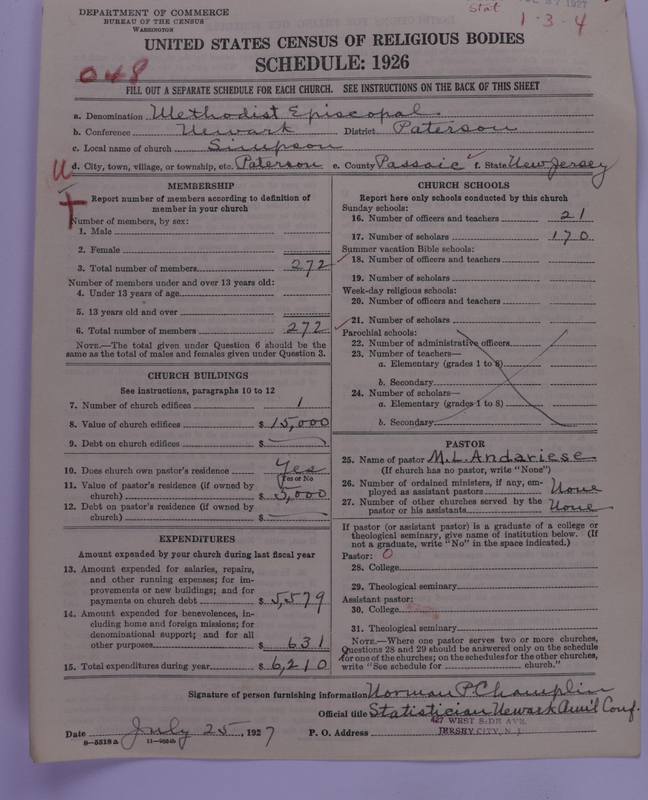 DEPARTMENT OF COMMERCE
BUREAU OF THE CENSUS
WASHINGTON
Stat
1-3-4
UNITED STATES CENSUS OF RELIGIOUS BODIES
SCHEDULE: 1926
048
FILL OUT A SEPARATE SCHEDULE FOR EACH CHURCH. SEE INSTRUCTIONS ON THE BACK OF THIS SHEET
a. Denomination Methodist Episcopal
b. Conference Newark District Paterson
c. Local name of church Simpson
U
d. City, town, village, or township, etc. Paterson e. County Passaic f. State New Jersey
MEMBERSHIP
Report number of members according to definition of
member in your church
Number of members, by sex:
1. Male
2. Female
3. Total number of members 272
Number of members under and over 13 years old:
4. Under 13 years of age
5. 13 years old and over
6. Total number of members 272
NOTE.—The total given under Question 6 should be the
same as the total of males and females given under Question 3.
CHURCH BUILDINGS
See instructions, paragraphs 10 to 12
7. Number of church edifices 1
8. Value of church edifices $ 15,000
9. Debt on church edifices $
10. Does church own pastor's residence Yes
Yes or No
11. Value of pastor's residence (if owned by
church) $ 5,000
12. Debt on pastor's residence (if owned by
church) $
EXPENDITURES
Amount expended by your church during last fiscal year
13. Amount expended for salaries, repairs,
and other running expenses; for im-
provements or new buildings; and for
payments on church debt $ 5,579
14. Amount expended for benevolences, in-
cluding home and foreign missions; for
denominational support; and for all
other purposes $ 631
15. Total expenditures during year $ 6,210
CHURCH SCHOOLS
Report here only schools conducted by this church
Sunday schools:
16. Number of officers and teachers 21
17. Number of scholars 170
Summer vacation Bible schools:
18. Number of officers and teachers
19. Number of scholars
Week-day religious schools:
20. Number of officers and teachers
21. Number of scholars
Parochial schools:
22. Number of administrative officers
23. Number of teachers—
a. Elementary (grades 1 to 8)
b. Secondary
24. Number of scholars—
a. Elementary (grades 1 to 8)
b. Secondary
PASTOR
25. Name of pastor M. L. Andariese
(If church has no pastor, write "None")
26. Number of ordained ministers, if any, em-
ployed as assistant pastors None
27. Number of other churches served by the
pastor or his assistants None
If pastor (or assistant pastor) is a graduate of a college or
theological seminary, give name of institution below. (If
not a graduate, write "No" in the space indicated.)
Pastor: 0
28. College
29. Theological seminary
Assistant pastor:
30. College
31. Theological seminary
NOTE.—Where one pastor serves two or more churches,
Questions 28 and 29 should be answered only on the schedule
for one of the churches; on the schedules for the other churches,
write "See schedule for church."
Signature of person furnishing information Norman P. Champlin
Official title Statistician Newark Ann'l Conf.
427 WEST SIDE AVE.
Date July 25, 1927 P. O. Address JERSEY CITY, N. J.
8-5518a